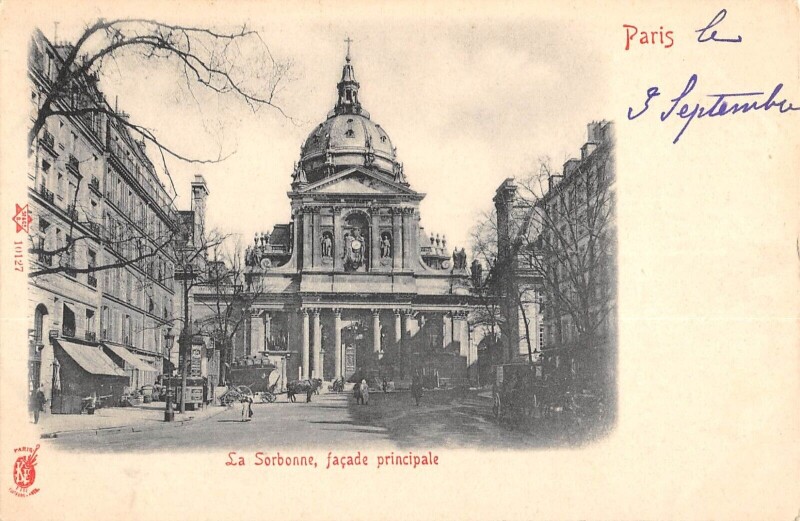 Paris le
3 Septembre
10127
PARIS
La Sorbonne, façade principale